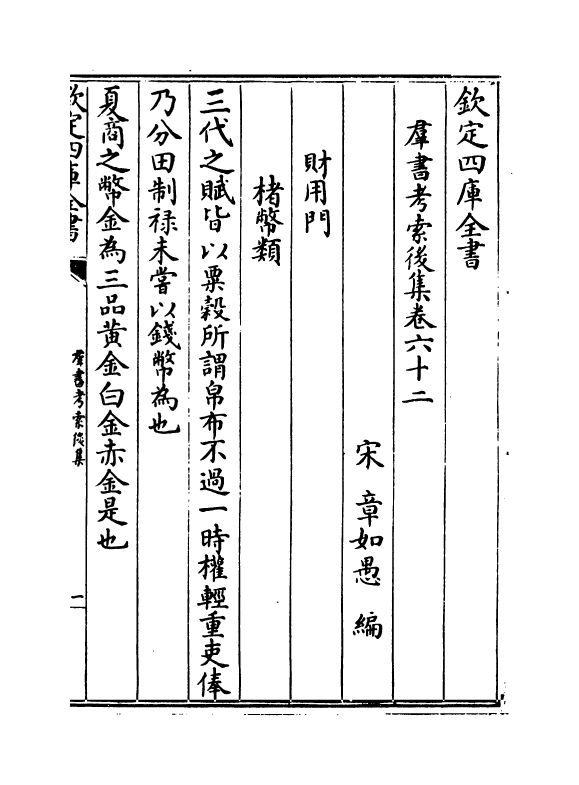 欽定四庫全書
羣書考索後集卷六十二
宋 章如愚 編
財用門
楮幣類
三代之賦皆以粟穀所謂帛布不過一時權輕重吏俸
乃分田制禄未嘗以錢幣為也
夏商之幣金為三品黄金白金赤金是也
欽定四庫全書
羣書考索後集
一